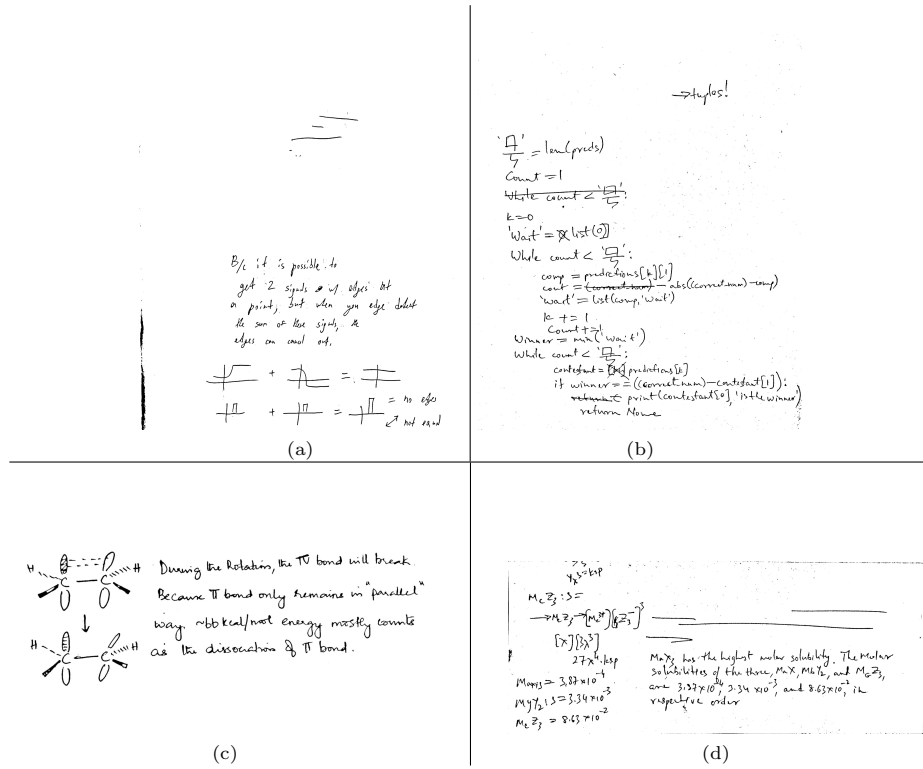 B/c it is possible to
get 2 signals w/ edges at
a point, but when you edge detect
the sum of those signals, the
edges can cancel out.
+ =
+ = = no edges
not equal
(a)
→ tuples!
= len(preds)
Count = 1
While count < :
k=0
'Wait' = list(0)]
While count < :
comp = predictions[k][1]
cout = (correct num) - abs((correct num) - comp)
'wait' = list(comp, 'wait')
k += 1
Count += 1
Winner = min('wait')
While count < :
contestant = predictions[k]
if winner == ((correct num) - contestant[1]):
print(contestant[0], 'is the winner')
return None
(b)
H H
C C
During the Rotation, the π bond will break.
Because π bond only remains in "parallel"
way. ~66 kcal/mol energy mostly counts
as the dissociation of π bond.
H H
C C
(c)
=ksp
:S=
[x][3x]³
27x⁴=ksp
= 3.87×10⁻⁴
:S=3.34×10⁻³
= 8.63×10⁻²
MaX₃ has the highest molar solubility. The molar
solubilities of the three, MaX, MbY₂, and McZ₃,
are 3.87×10⁻⁴, 3.34×10⁻³, and 8.63×10⁻², in
respective order
(d)